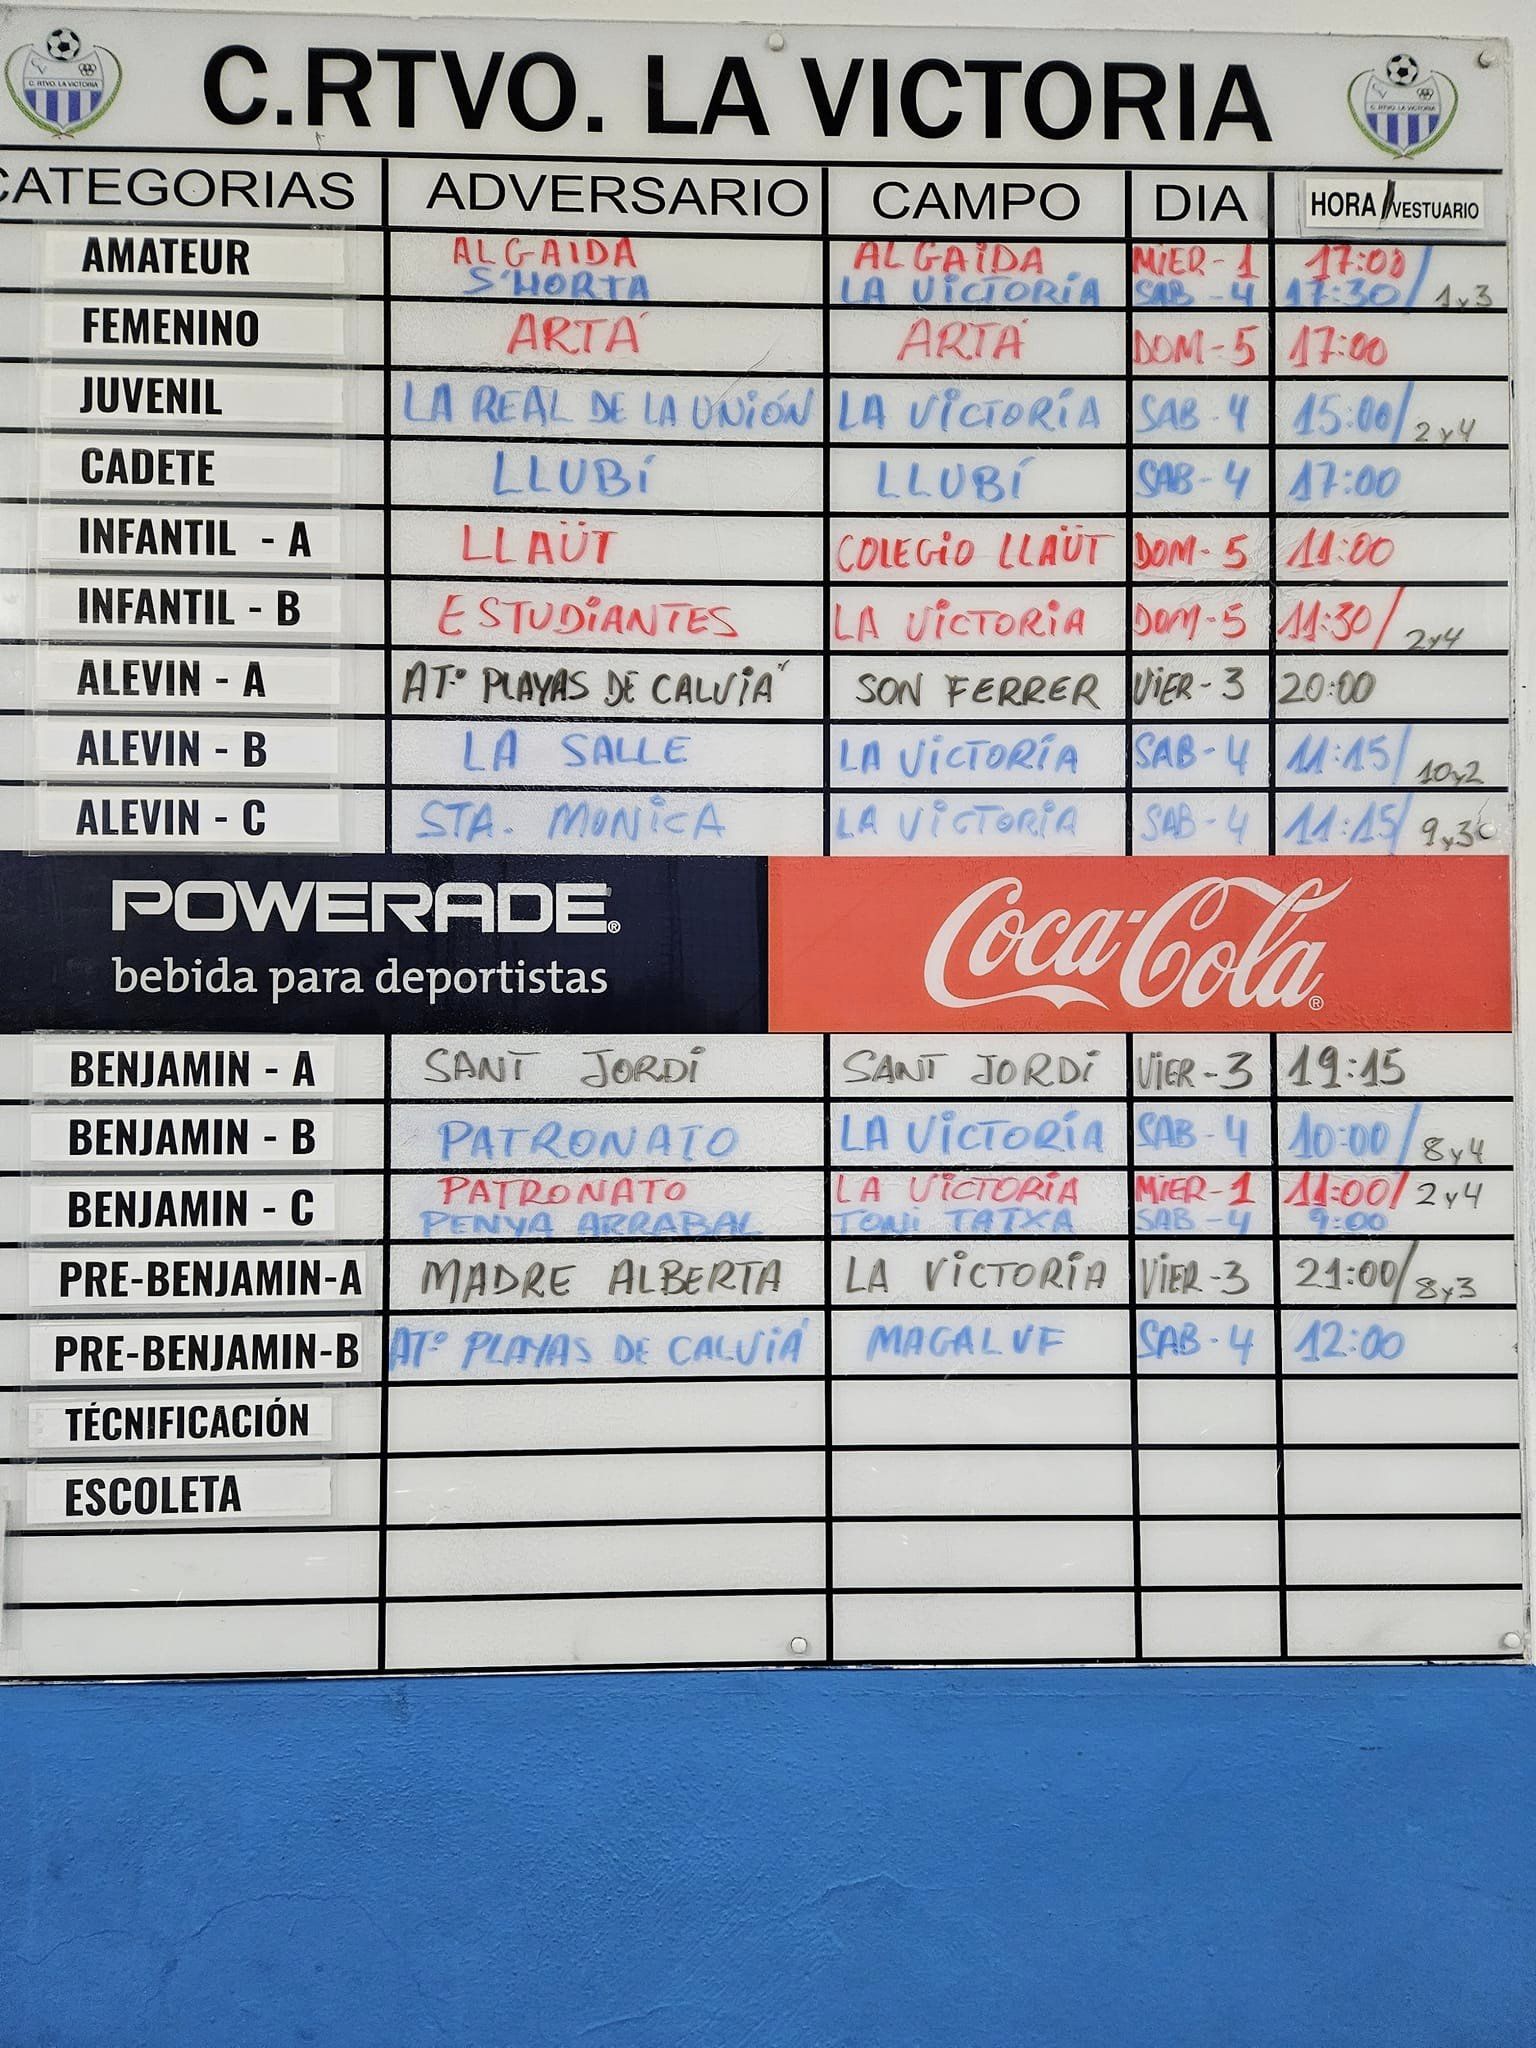 C. RTVO. LA VICTORIA
C.RTVO. LA VICTORIA
C. RTVO. LA VICTORIA
CATEGORIAS ADVERSARIO CAMPO DIA HORA/VESTUARIO
AMATEUR ALGAIDA ALGAIDA MIER-1 17:00/
S'HORTA LA VICTORIA SAB-4 17:30/ 1y3
FEMENINO ARTÁ ARTÁ DOM-5 17:00
JUVENIL LA REAL DE LA UNIÓN LA VICTORIA SAB-4 15:00/ 2y4
CADETE LLUBÍ LLUBÍ SAB-4 17:00
INFANTIL - A LLAÜT COLEGIO LLAÜT DOM-5 11:00
INFANTIL - B ESTUDIANTES LA VICTORIA DOM-5 11:30/ 2y4
ALEVIN - A AT.º PLAYAS DE CALVIÁ SON FERRER VIER-3 20:00
ALEVIN - B LA SALLE LA VICTORÍA SAB-4 11:15/ 10y2
ALEVIN - C STA. MONICA LA VICTORIA SAB-4 11:15/ 9y3
POWERADE®
bebida para deportistas
Coca-Cola®
BENJAMIN - A SANT JORDI SANT JORDI VIER-3 19:15
BENJAMIN - B PATRONATO LA VICTORÍA SAB-4 10:00/ 8y4
BENJAMIN - C PATRONATO LA VICTORIA MIER-1 11:00/ 2y4
PENYA ARRABAL TONI TATXA SAB-4 9:00
PRE-BENJAMIN-A MADRE ALBERTA LA VICTORIA VIER-3 21:00/ 8y3
PRE-BENJAMIN-B AT.º PLAYAS DE CALVIÁ MAGALUF SAB-4 12:00
TÉCNIFICACIÓN
ESCOLETA